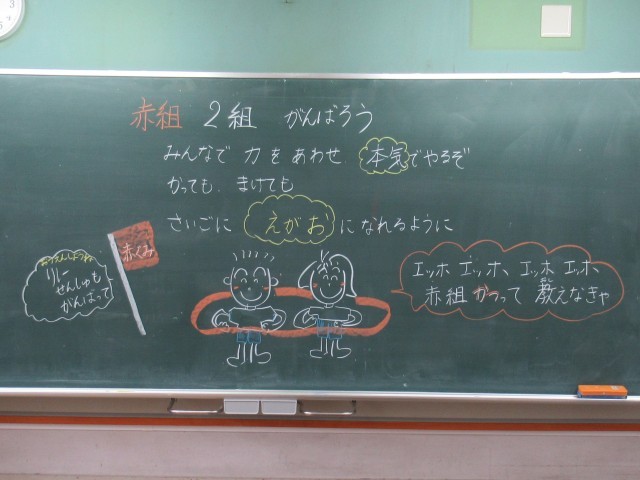 赤組 2組 がんばろう
みんなで 力をあわせ 本気でやるぞ
かっても まけても
さいごに えがお になれるように
赤くみ
りレー
せんしゅも
がんばって
エッホ エッホ、エッホ エッホ、
赤組 かつって 教えなきゃ